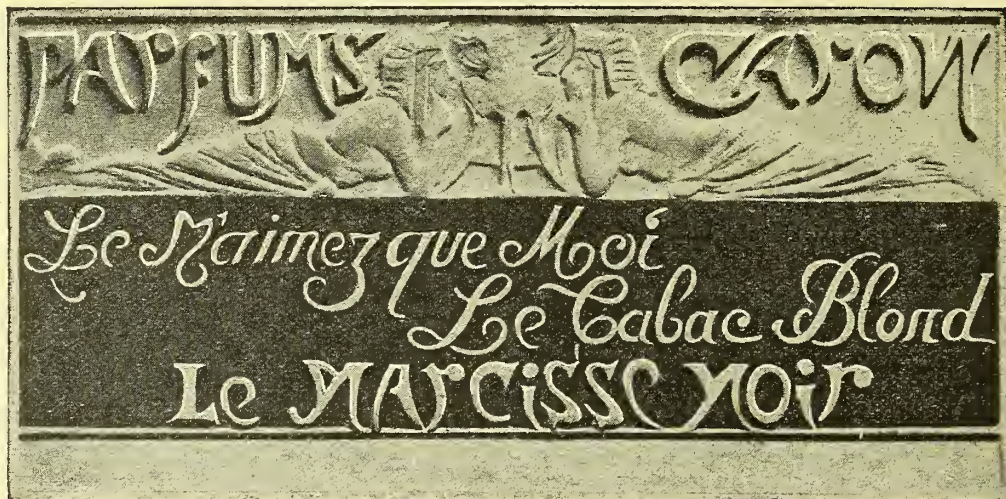 PARFUMS CARON
Le N'aimez que Moi
Le Tabac Blond
Le NARCISSE NOir